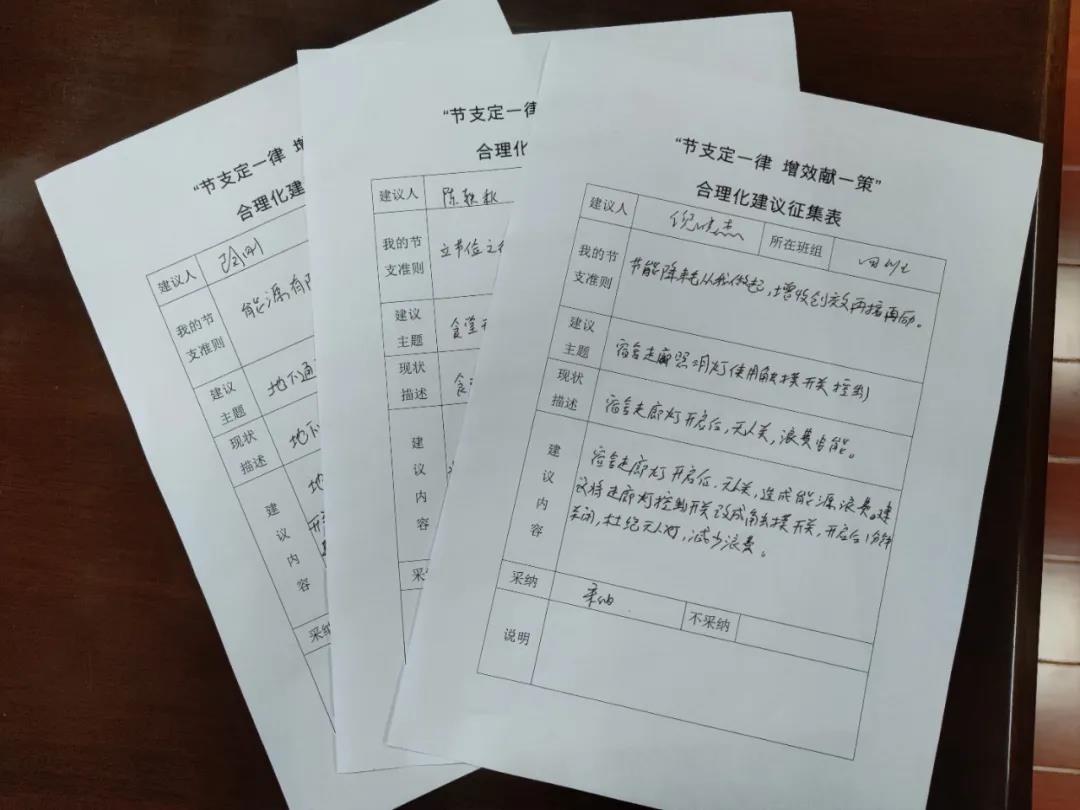 “节支定一律 增
合理化建
建议人
我的节
支准则
能源有限
建议
主题
地下通
现状
描述
地下
建
议
内
容
地
开
采纳
“节支定一律
合理化
建议人
陈
我的节
支准则
立节俭之
建议
主题
食堂开
现状
描述
食
建
议
内
容
采纳
“节支定一律 增效献一策”
合理化建议征集表
建议人
倪 杰
所在班组
四
我的节
支准则
节能降耗从我做起，增收创效再接再励。
建议
主题
宿舍走廊照明灯使用触摸开关控制
现状
描述
宿舍走廊灯开启后，无人关，浪费电能。
建
议
内
容
宿舍走廊灯开启后，无人关，造成能源浪费。建
议将走廊灯控制开关改成触摸开关，开启后1分钟
关闭，杜绝无人灯，减少浪费。
采纳
采纳
不采纳
说明